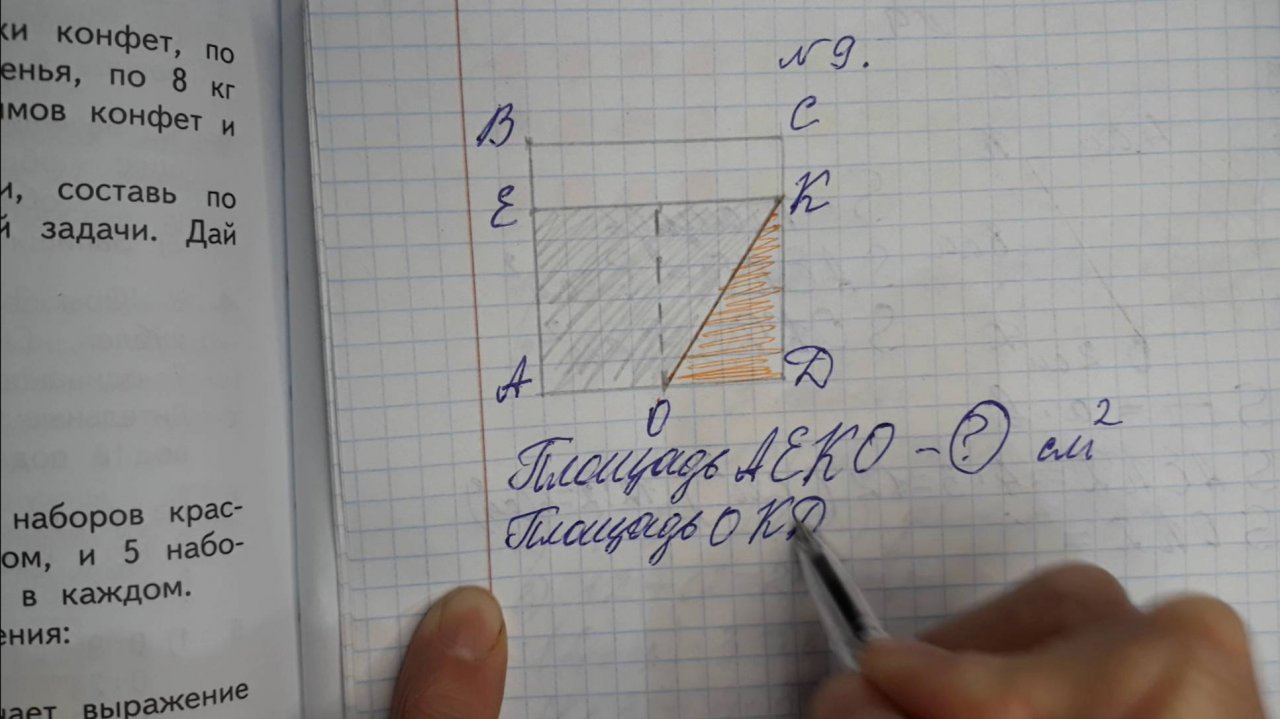 ки конфет, по
енья, по 8 кг
мов конфет и
и, составь по
й задачи. Дай
наборов крас-
ом, и 5 набо-
в каждом.
ения:
ает выражение
№ 9.
B
C
E
K
A
Д
O
Площадь AEKO - ? см²
Площадь OKД